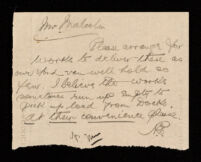 Mr Malcolm
Please arrange for
works to deliver these as
our van will hold so
few. I believe the works
sometimes run up empty to
pick up load from Docks.
At their convenience please.